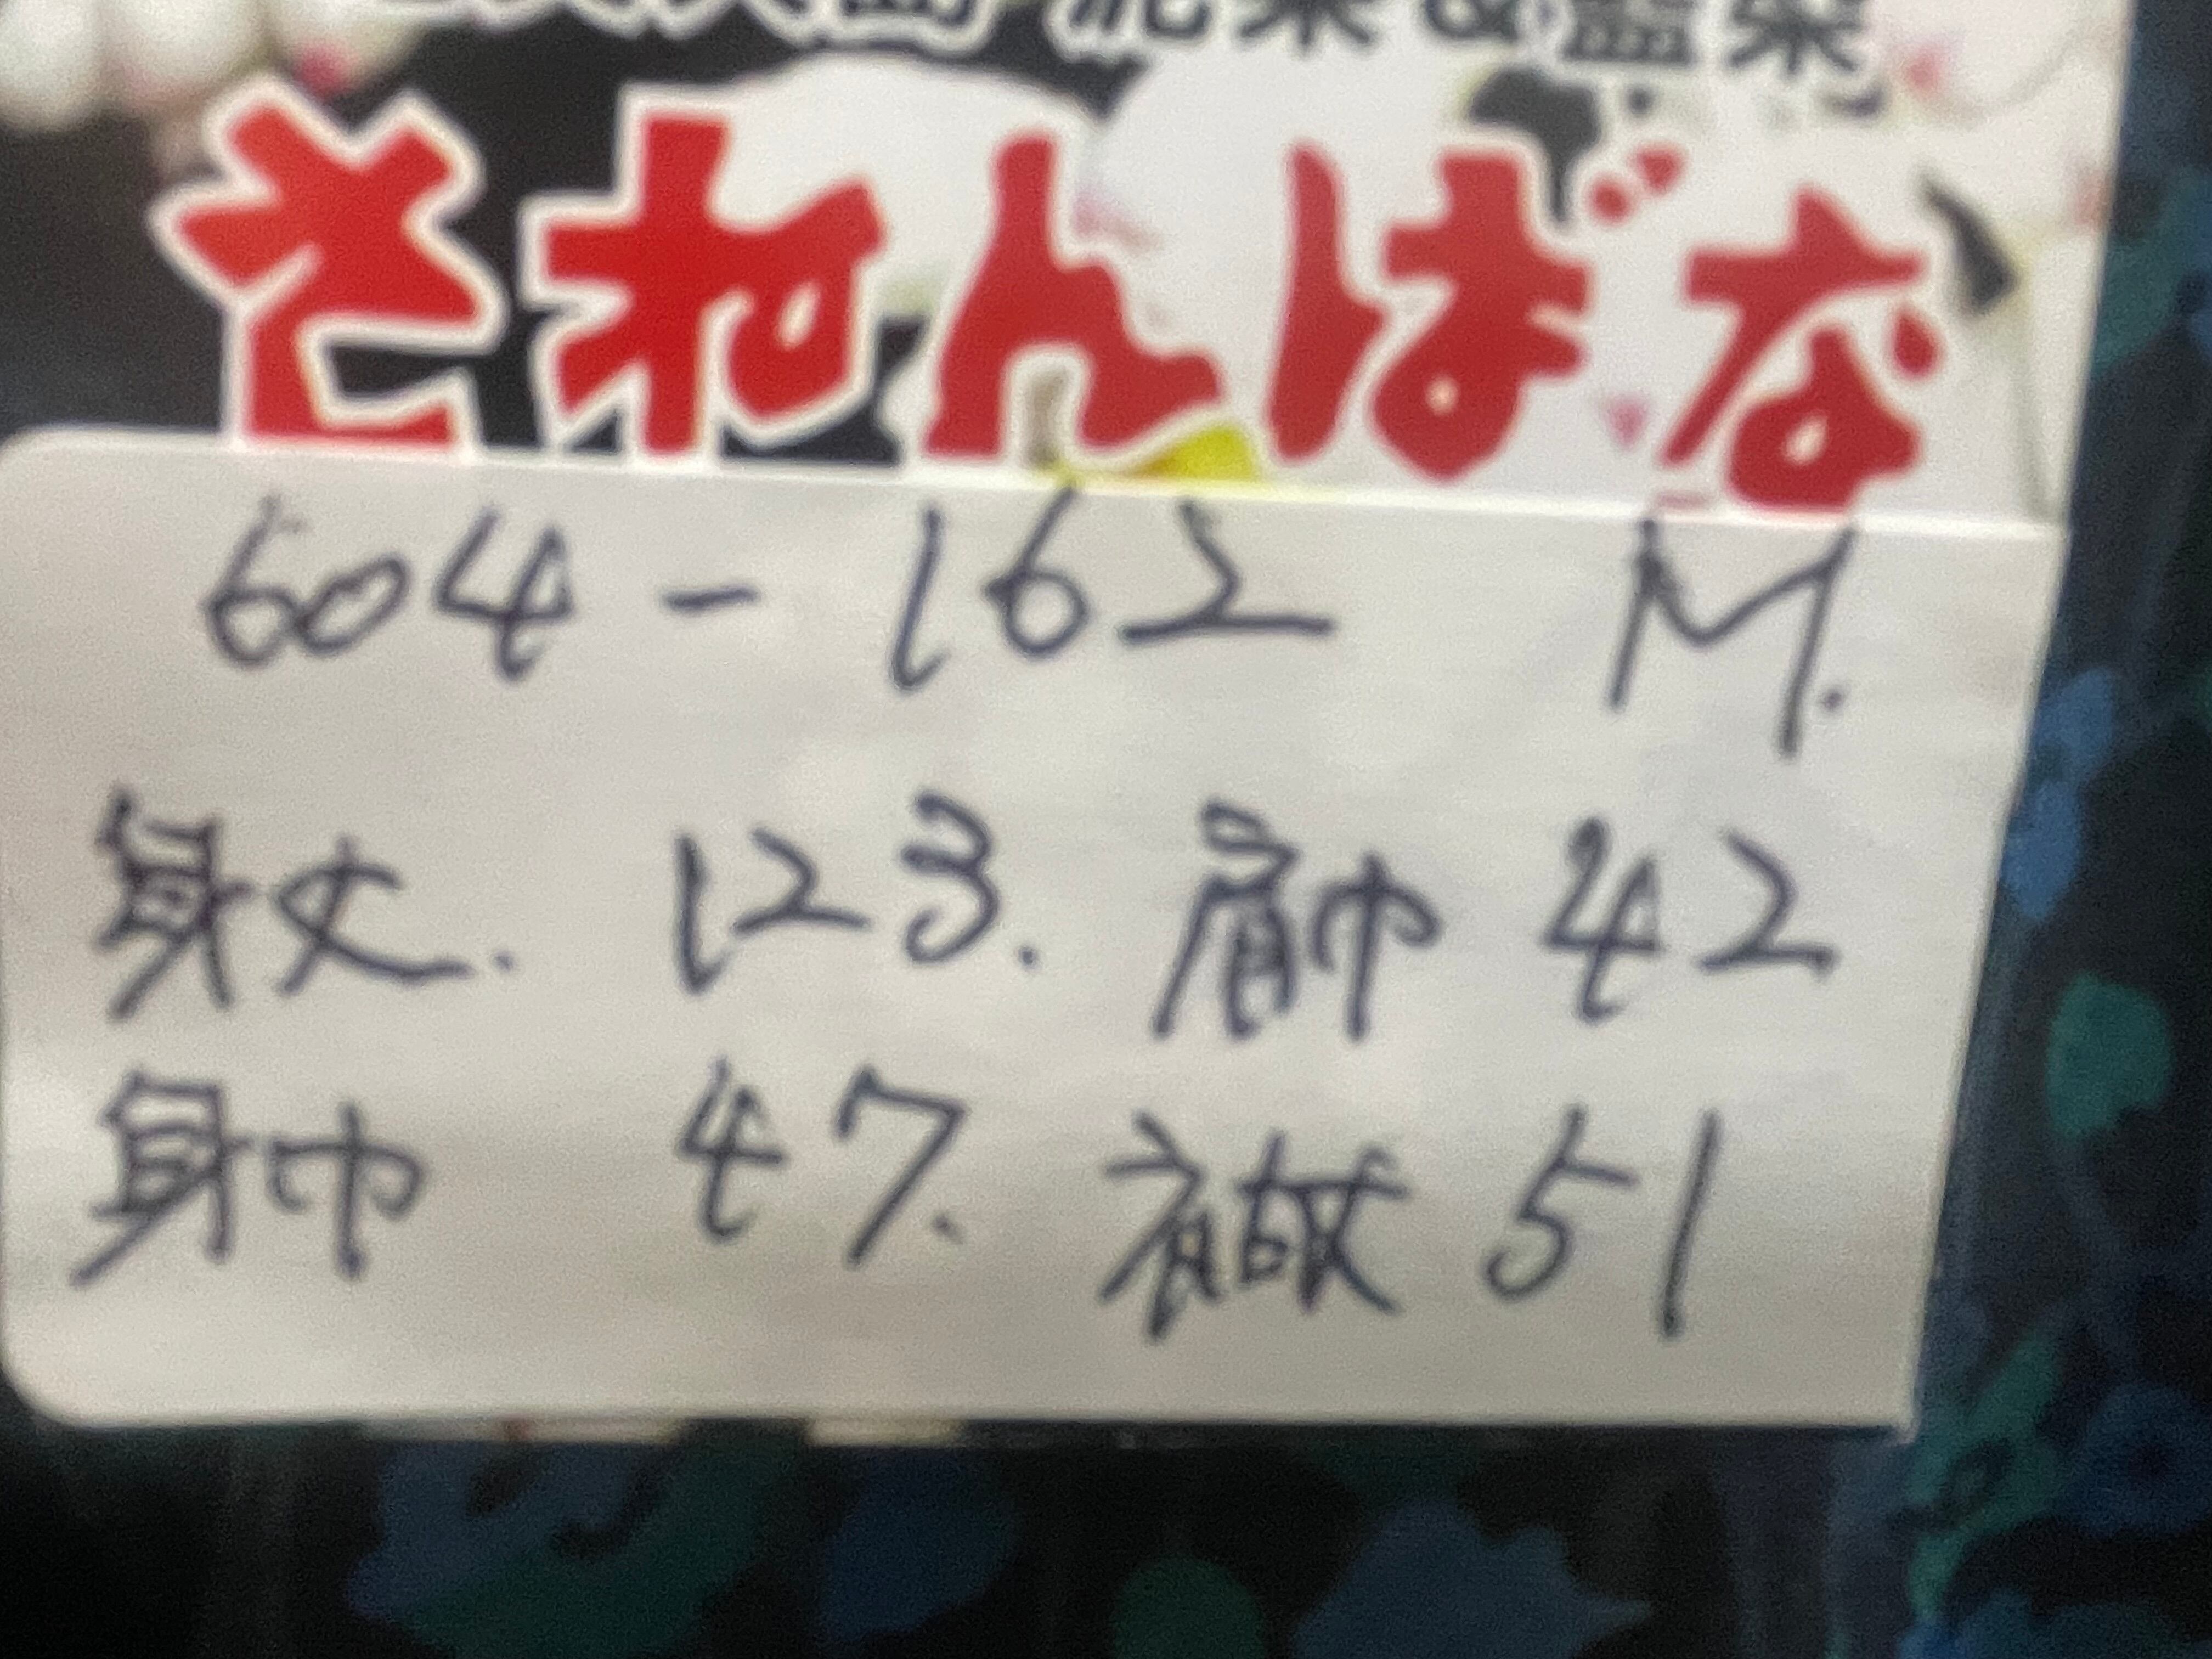 さねんばな
604-162 M.
身丈. 123. 肩巾 42
身巾 47. 裄丈 51